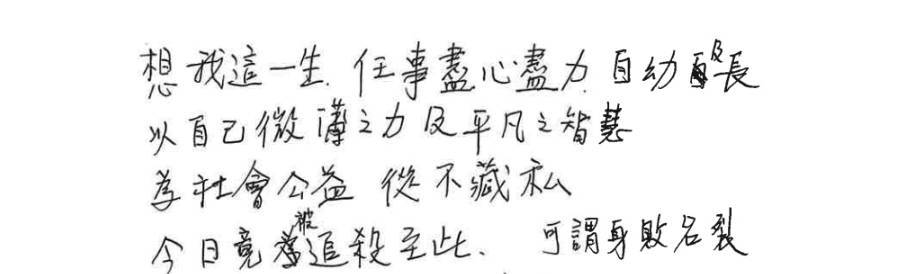 想我這一生.任事盡心盡力.自幼及長
以自己微薄之力及平凡之智慧
為社會公益 從不藏私
今日竟被追殺至此、可謂身敗名裂